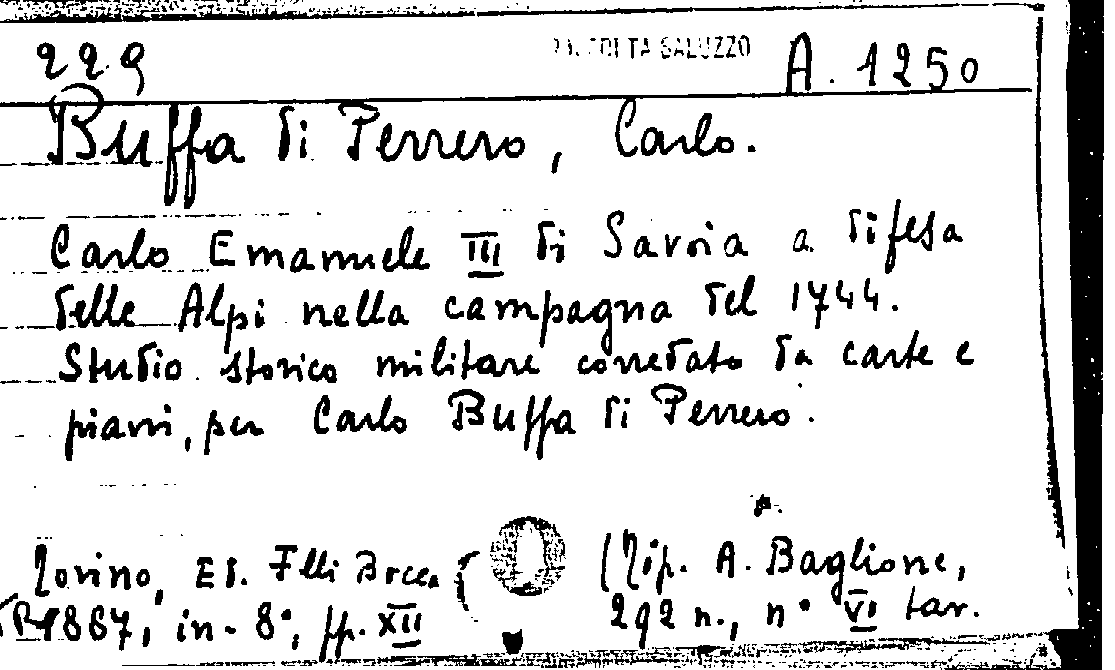 229 RACCOLTA SALUZZO A. 1250
Buffa di Perrero, Carlo.
Carlo Emanuele III di Savoia a difesa
delle Alpi nella campagna del 1744.
Studio storico militare corredato da carte e
piani, per Carlo Buffa di Perrero.
Torino, Ed. Flli Bocca (Tip. A. Baglione,
1887, in-8°, pp. XII 292 n., n° VI tav.